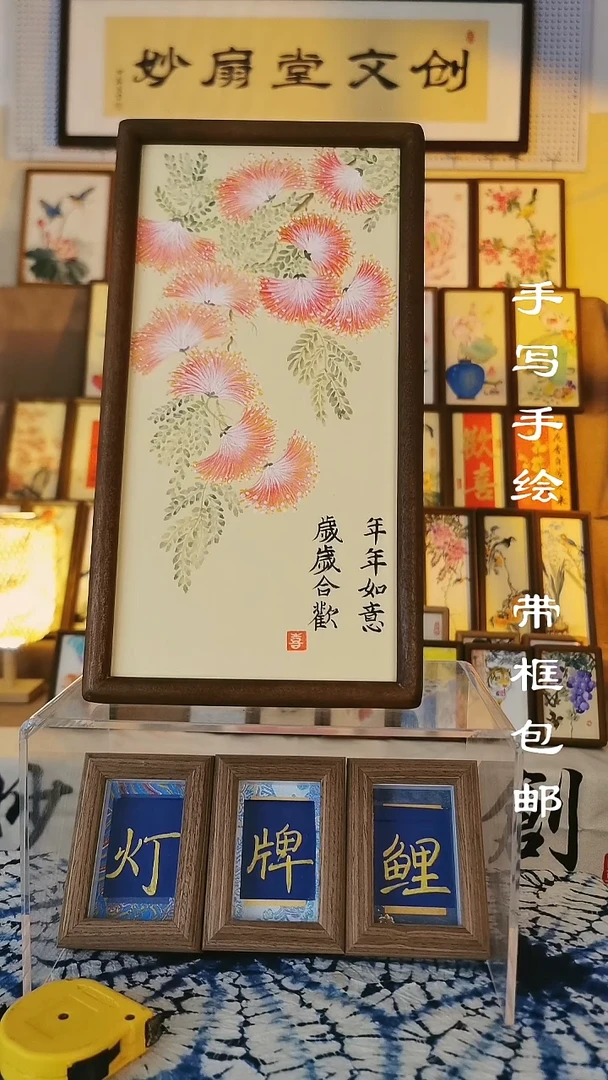 妙扇堂文创
年年如意
歲歲合歡
喜
手写手绘
带框包邮
欢喜
灯
牌
鲤
妙
創